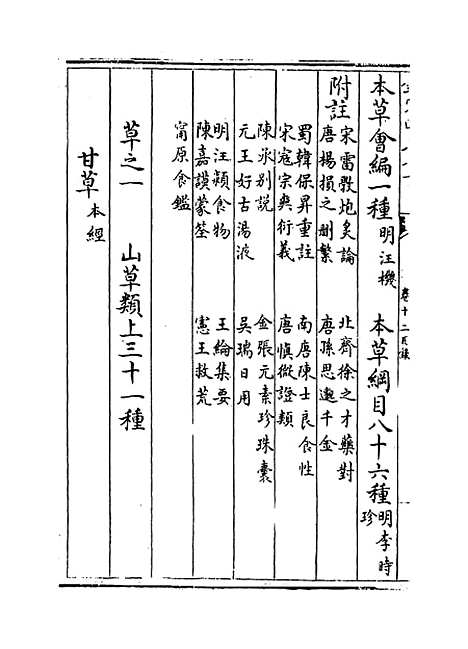 卷十二目錄
本草會編一種明汪機　本草綱目八十六種明李時珍
附註宋雷斅炮炙論　北齊徐之才藥對
唐楊損之刪繁　唐孫思邈千金
蜀韓保昇重註　南唐陳士良食性
宋寇宗奭衍義　唐慎微證類
陳承別說　金張元素珍珠囊
元王好古湯液　吳瑞日用
明汪穎食物　王綸集要
陳嘉謨蒙筌　憲王救荒
甯原食鑑
草之一　山草類上三十一種
甘草本經